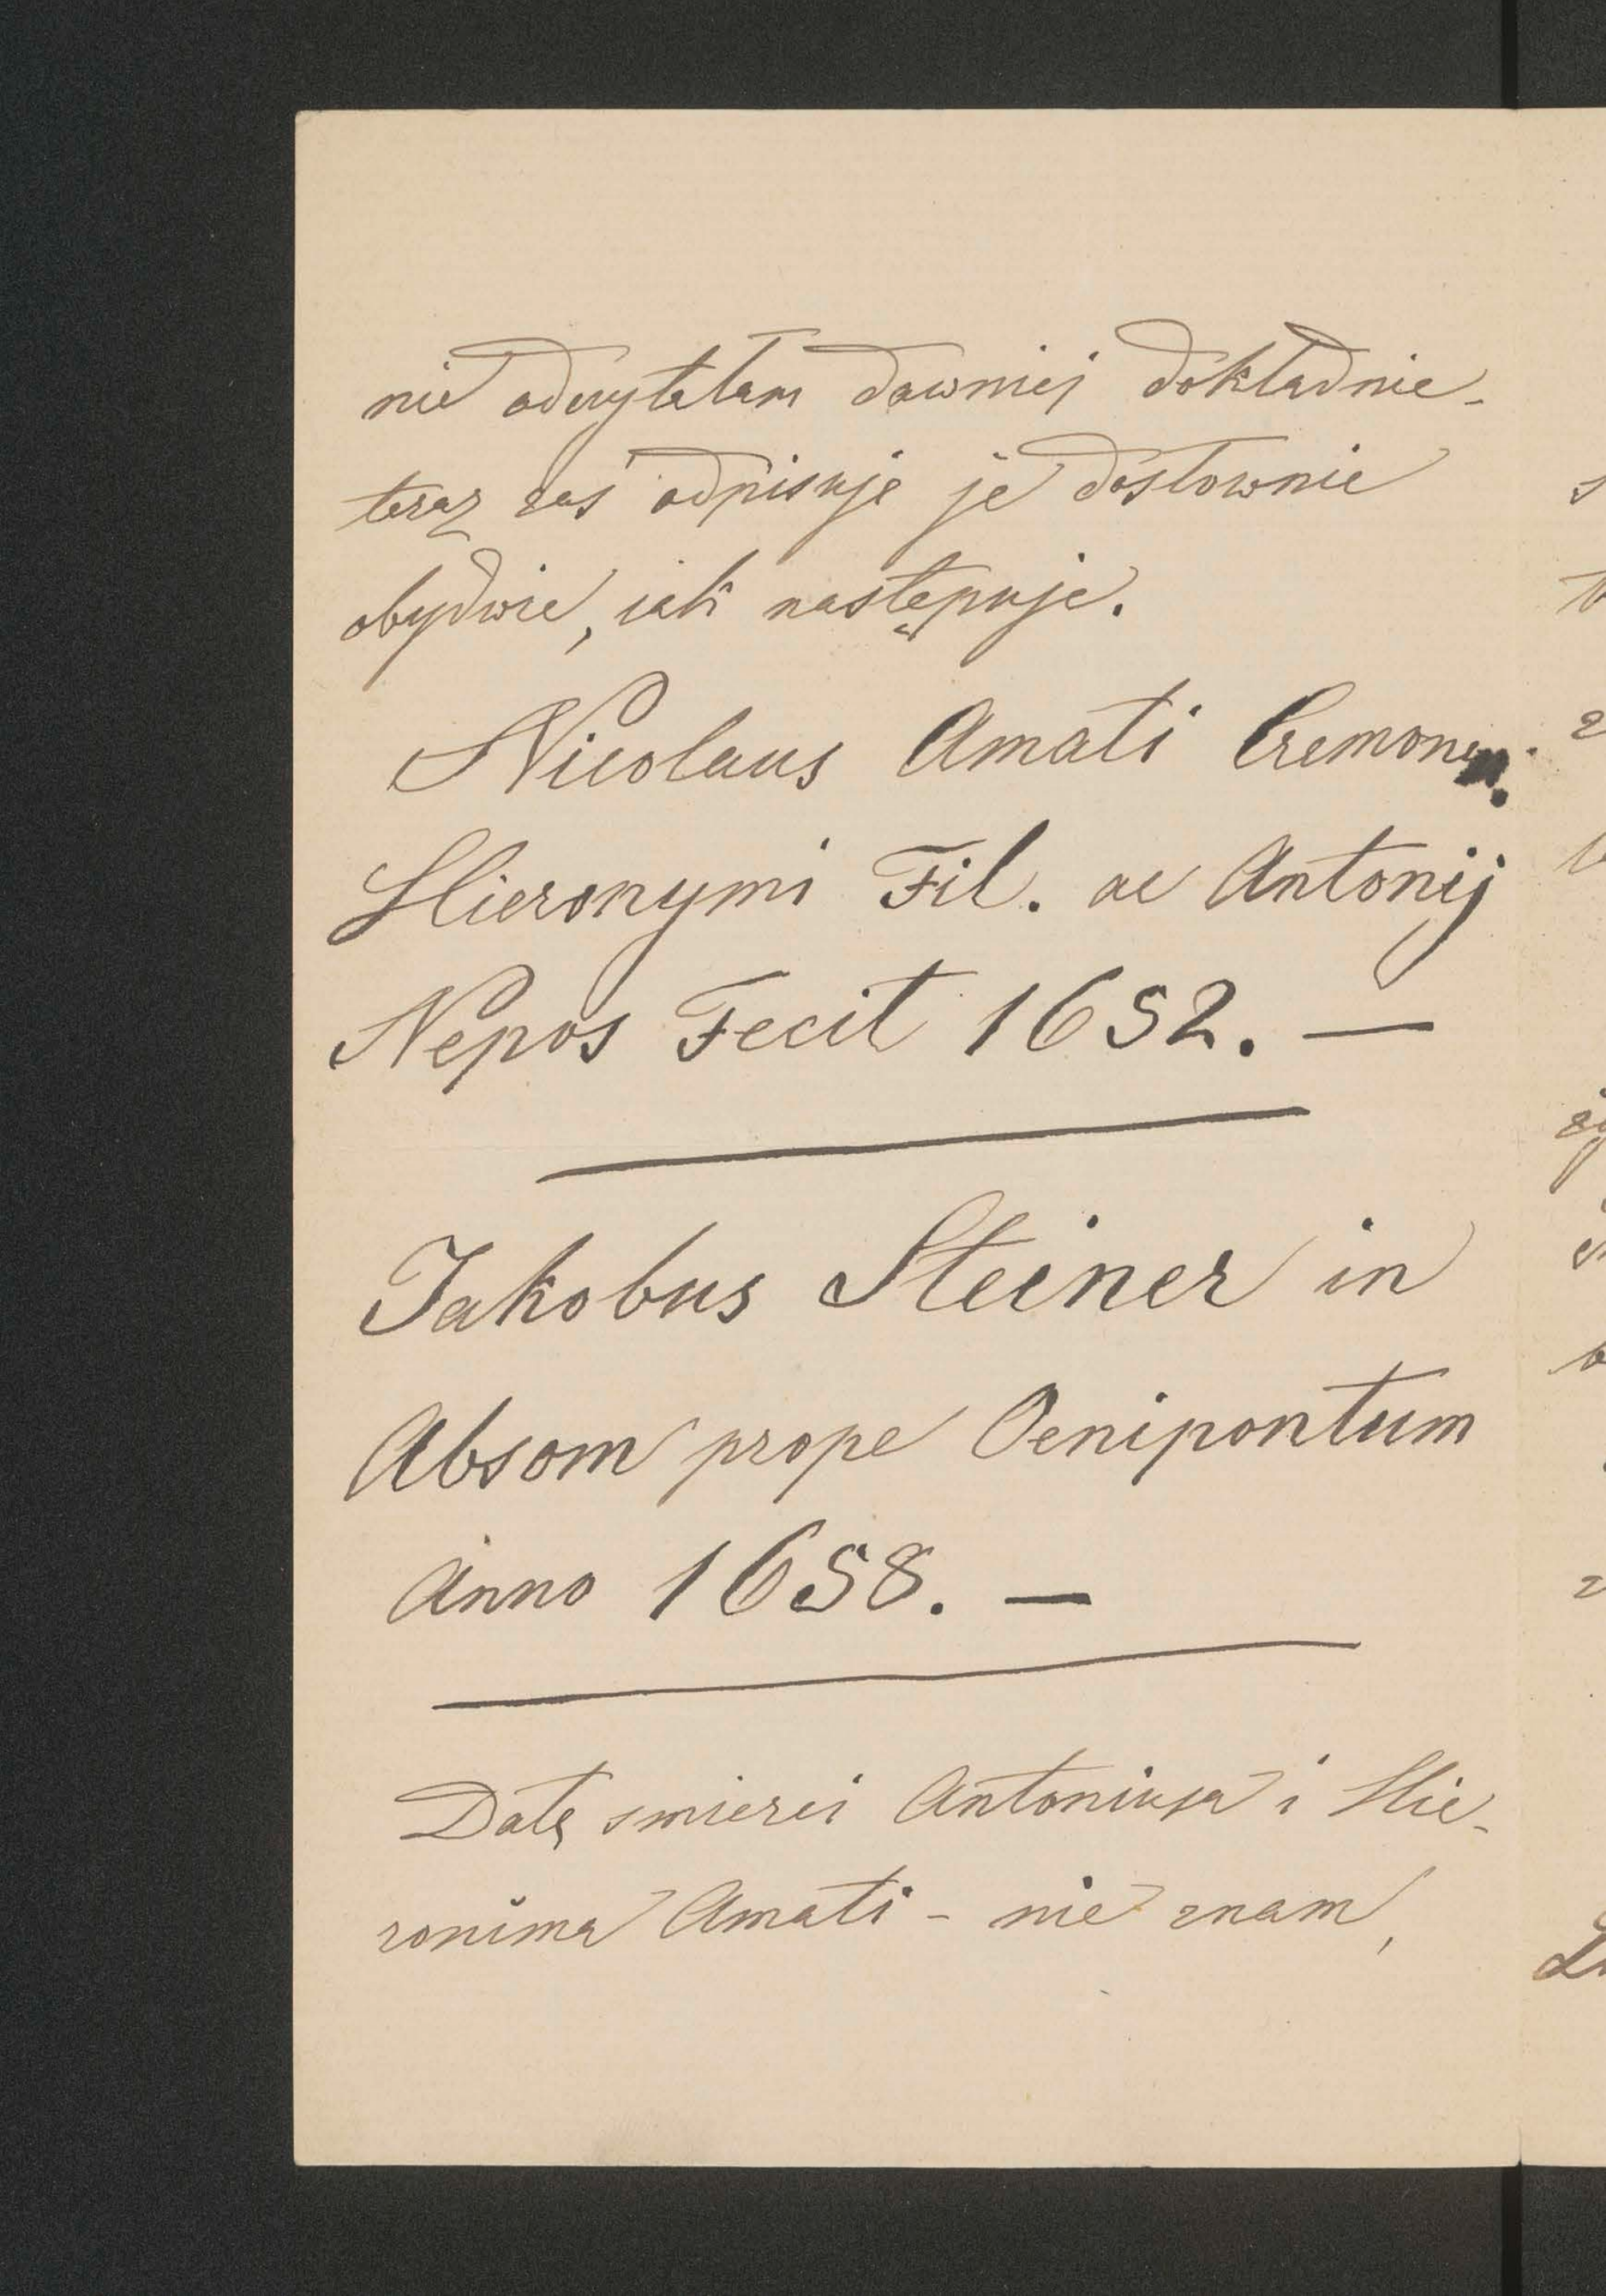 nie odczytałam dawniej dokładnie -
teraz zaś odpisuję je dosłownie
obydwie, jak następuje.
Nicolaus Amati Cremonen.
Hieronymi Fil. ac Antonij
Nepos Fecit 1652. —
Jakobus Steiner in
Absom prope Oenipontum
Anno 1658. —
Datę smierci Antoniusa i Hie-
ronima Amati - nie znam,